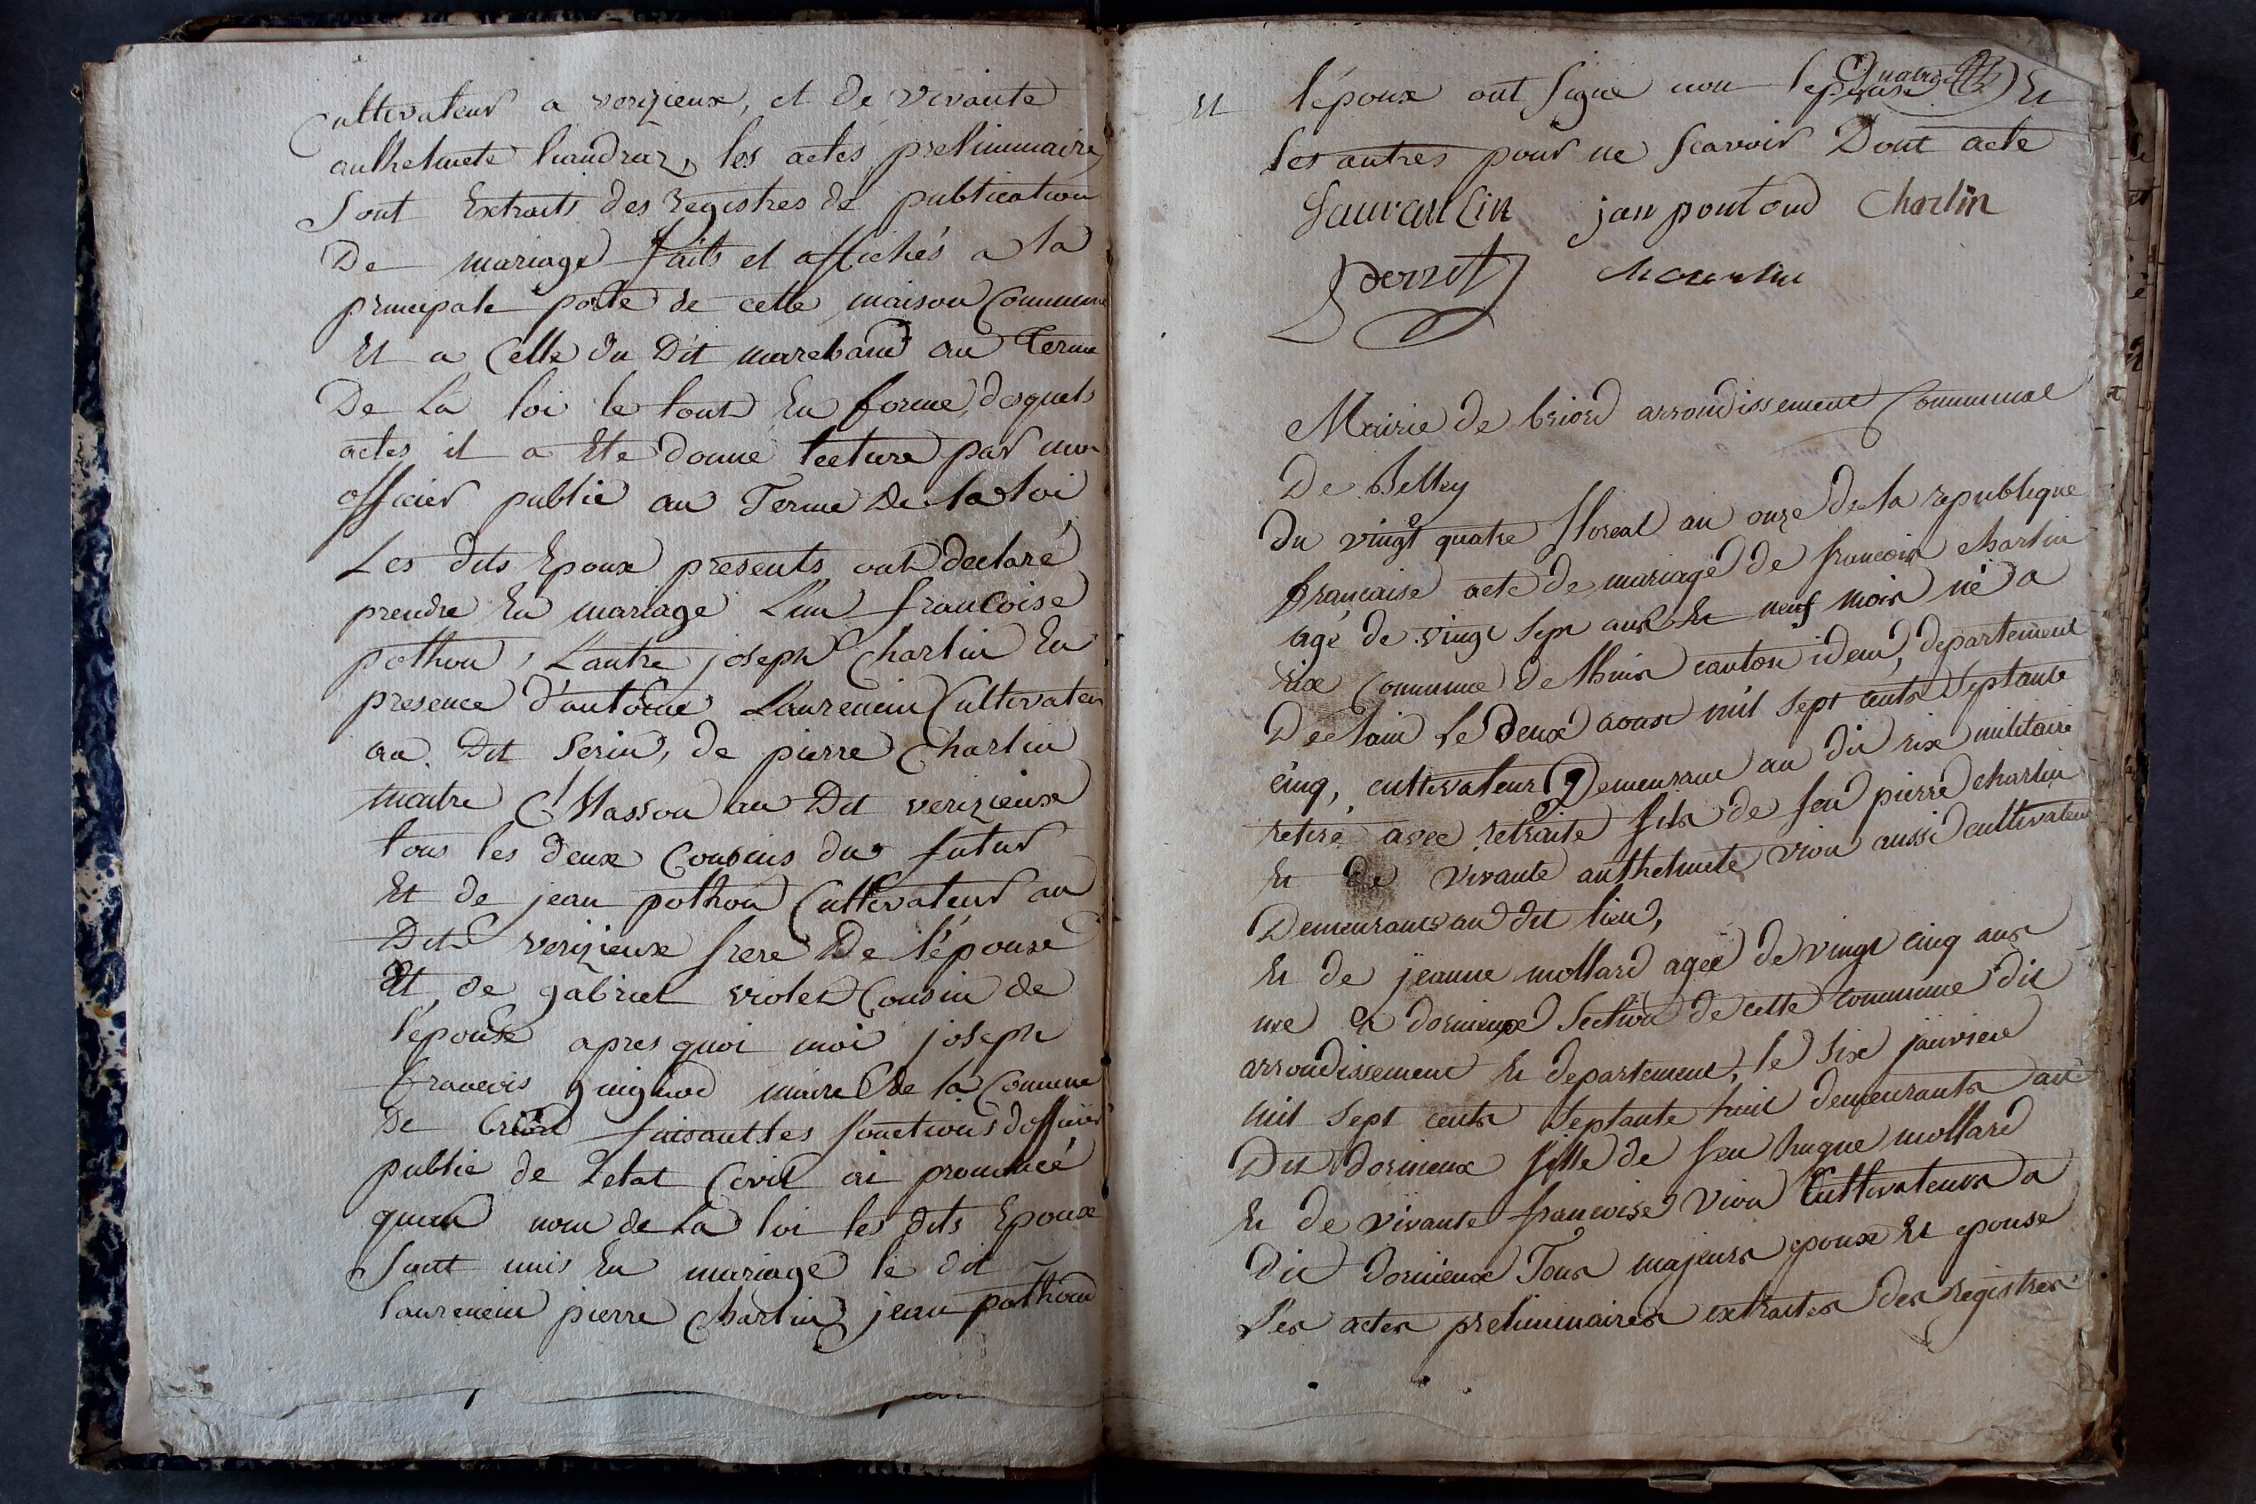 Cultivateur a verizieux, et de vivante
anthelmete liandraz, les actes preliminaire
Sont Extraits des Registres de publication
De mariage faits et affichés a la
principale porte de cette maison Commune
Et a Celle du Dit marchand au Terme
De La loi le tout En forme, desquels
actes il a Ete donné lecture par moi
officier public au Terme De la loi
Les dits Epoux presents ont declaré
prendre En mariage L'un francoise
pothon, L'autre joseph Charlin En
presence d'antoine Laurencin Cultivateur
au Dit Serin, de pierre Charlin
maitre Masson au Dit verizieux
tous les deux Cousins du futur
Et de jean pothon Cultivateur au
Dit verizieux frere De l'épouse
Et de gabriel violet Cousin de
l'épouse apres quoi moi joseph
francois maire de la Comune
de briord faisant les fonctions d'officier
public de L'etat Civil ai prononcé
qu'au nom de La loi les dits Epoux
Sont unis En mariage le dit
laurencin pierre Charlin jean pothon
Et l'époux ont signé non l'epouse Et
les autres pour ne scavoir Dont acte
Charlin
perret
Mairie de briord arrondissement Communal
De Belley
Du vingt quatre floreal an onze de la republique
francaise acte de mariage de francois charlin
agé de vingt sept ans Et neuf mois né a
rix Commune de lhuis canton idem, departement
De l'ain Le deux aoust mil sept cents septante
cinq, cultivateur Demeurant au dit rix militaire
retiré avec retraite fils de feu pierre charlin
Et de vivante anthelmete vion aussi cultivateur
Demeurants au dit lieu,
Et de jeanne mollard agée de vingt cinq ans
née a dornieux Section de cette commune dit
arrondissement Et departement, le six janvier
mil sept cents septante huit demeurants au
Dit dornieux fille de feu hugue mollard
Et de vivante francoise vion Cultivateurs a
Dit dornieux Tous majeurs epoux Et epouse
Les actes preliminaires extraites des registres